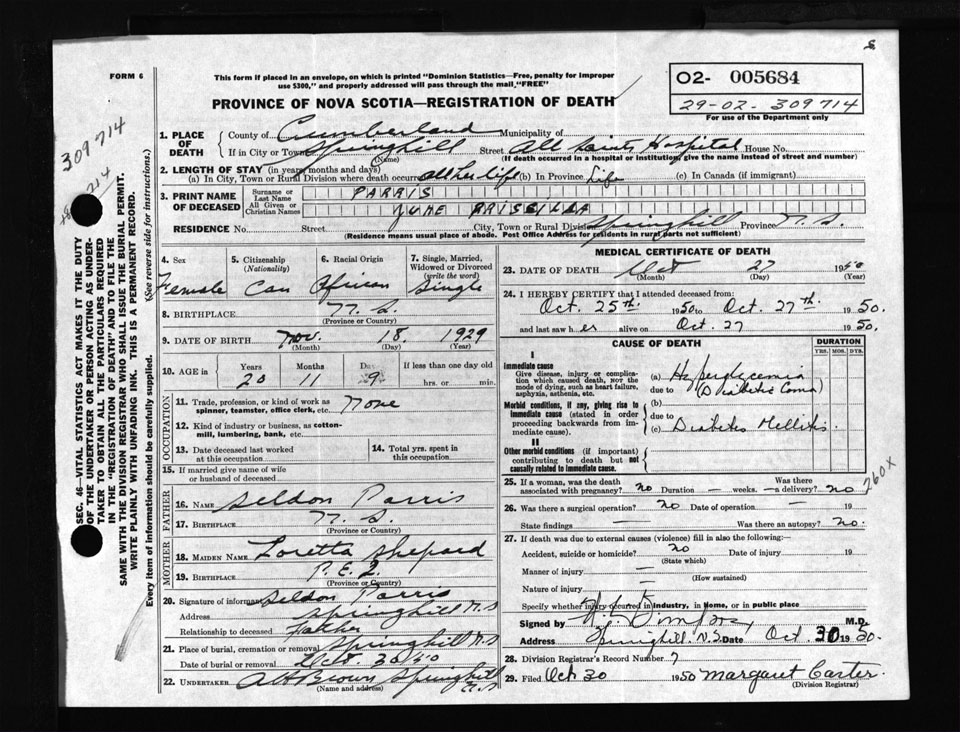 FORM 6
This form if placed in an envelope, on which is printed "Dominion Statistics—Free, penalty for improper
use $300," and properly addressed will pass through the mail, "FREE"
PROVINCE OF NOVA SCOTIA—REGISTRATION OF DEATH
O2- 005684
29-02-309714
For use of the Department only
309714
1. PLACE OF DEATH
County of Cumberland Municipality of
If in City or Town Springhill Street All Saints Hospital House No.
(Name) (If death occurred in a hospital or institution, give the name instead of street and number)
2. LENGTH OF STAY (in years, months and days)
(a) In City, Town or Rural Division where death occurred all her life (b) In Province Life (c) In Canada (if immigrant)
3. PRINT NAME OF DECEASED
Surname or Last Name PARRIS
All Given or Christian Names JUNE PRISCILLA
RESIDENCE No. Street City, Town or Rural Division Springhill Province N.S.
(Residence means usual place of abode. Post Office Address for residents in rural parts not sufficient)
4. Sex Female
5. Citizenship (Nationality) Can
6. Racial Origin African
7. Single, Married, Widowed or Divorced (write the word) Single
8. BIRTHPLACE N.S.
(Province or Country)
9. DATE OF BIRTH Nov. 18. 1929
(Month) (Day) (Year)
10. AGE in Years 20 Months 11 Days 9 If less than one day old hrs. or min.
OCCUPATION
11. Trade, profession, or kind of work as spinner, teamster, office clerk, etc. None
12. Kind of industry or business, as cotton-mill, lumbering, bank, etc.
13. Date deceased last worked at this occupation
14. Total yrs. spent in this occupation
15. If married give name of wife or husband of deceased
FATHER
16. NAME Seldon Parris
17. BIRTHPLACE N.S.
(Province or Country)
MOTHER
18. MAIDEN NAME Loretta Shepard
19. BIRTHPLACE P.E.I.
(Province or Country)
20. Signature of informant Seldon Parris
Address Springhill N.S
Relationship to deceased Father
21. Place of burial, cremation or removal Springhill N.S
Date of burial or removal Oct. 30/50
22. UNDERTAKER A H Brown Springhill N.S
(Name and address)
MEDICAL CERTIFICATE OF DEATH
23. DATE OF DEATH Oct 27 1950
(Month) (Day) (Year)
24. I HEREBY CERTIFY that I attended deceased from:
Oct. 25th 1950 to Oct. 27th. 1950
and last saw her alive on Oct. 27 1950.
CAUSE OF DEATH
DURATION
YRS. MOS. DYS.
I
Immediate cause
Give disease, injury or complication which caused death, NOT the mode of dying, such as heart failure, asphyxia, asthenia, etc.
(a) Hyperglycemia
due to (Diabetic Coma)
Morbid conditions, if any, giving rise to immediate cause (stated in order proceeding backwards from immediate cause).
(b)
due to
(c) Diabetes Mellitis.
II
Other morbid conditions (if important) contributing to death but not causally related to immediate cause.
25. If a woman, was the death associated with pregnancy? no Duration — weeks. Was there a delivery? no
260X
26. Was there a surgical operation? no Date of operation — 19
State findings — Was there an autopsy? no.
27. If death was due to external causes (violence) fill in also the following:—
Accident, suicide or homicide? no Date of injury 19
(State which)
Manner of injury —
(How sustained)
Nature of injury —
Specify whether injury occurred in Industry, in Home, or in public place
Signed by M.D.
Address Springhill. N.S. Date Oct. 30 1950.
28. Division Registrar's Record Number 7
29. Filed Oct 30 1950 Margaret Carter.
(Division Registrar)
SEC. 46—VITAL STATISTICS ACT MAKES IT THE DUTY
OF THE UNDERTAKER OR PERSON ACTING AS UNDER-
TAKER TO OBTAIN ALL THE PARTICULARS REQUIRED
IN THE "REGISTRATION OF DEATH" AND TO FILE THE
SAME WITH THE DIVISION REGISTRAR WHO SHALL ISSUE THE BURIAL PERMIT.
WRITE PLAINLY WITH UNFADING INK. THIS IS A PERMANENT RECORD.
Every item of information should be carefully supplied. (See reverse side for instructions.)